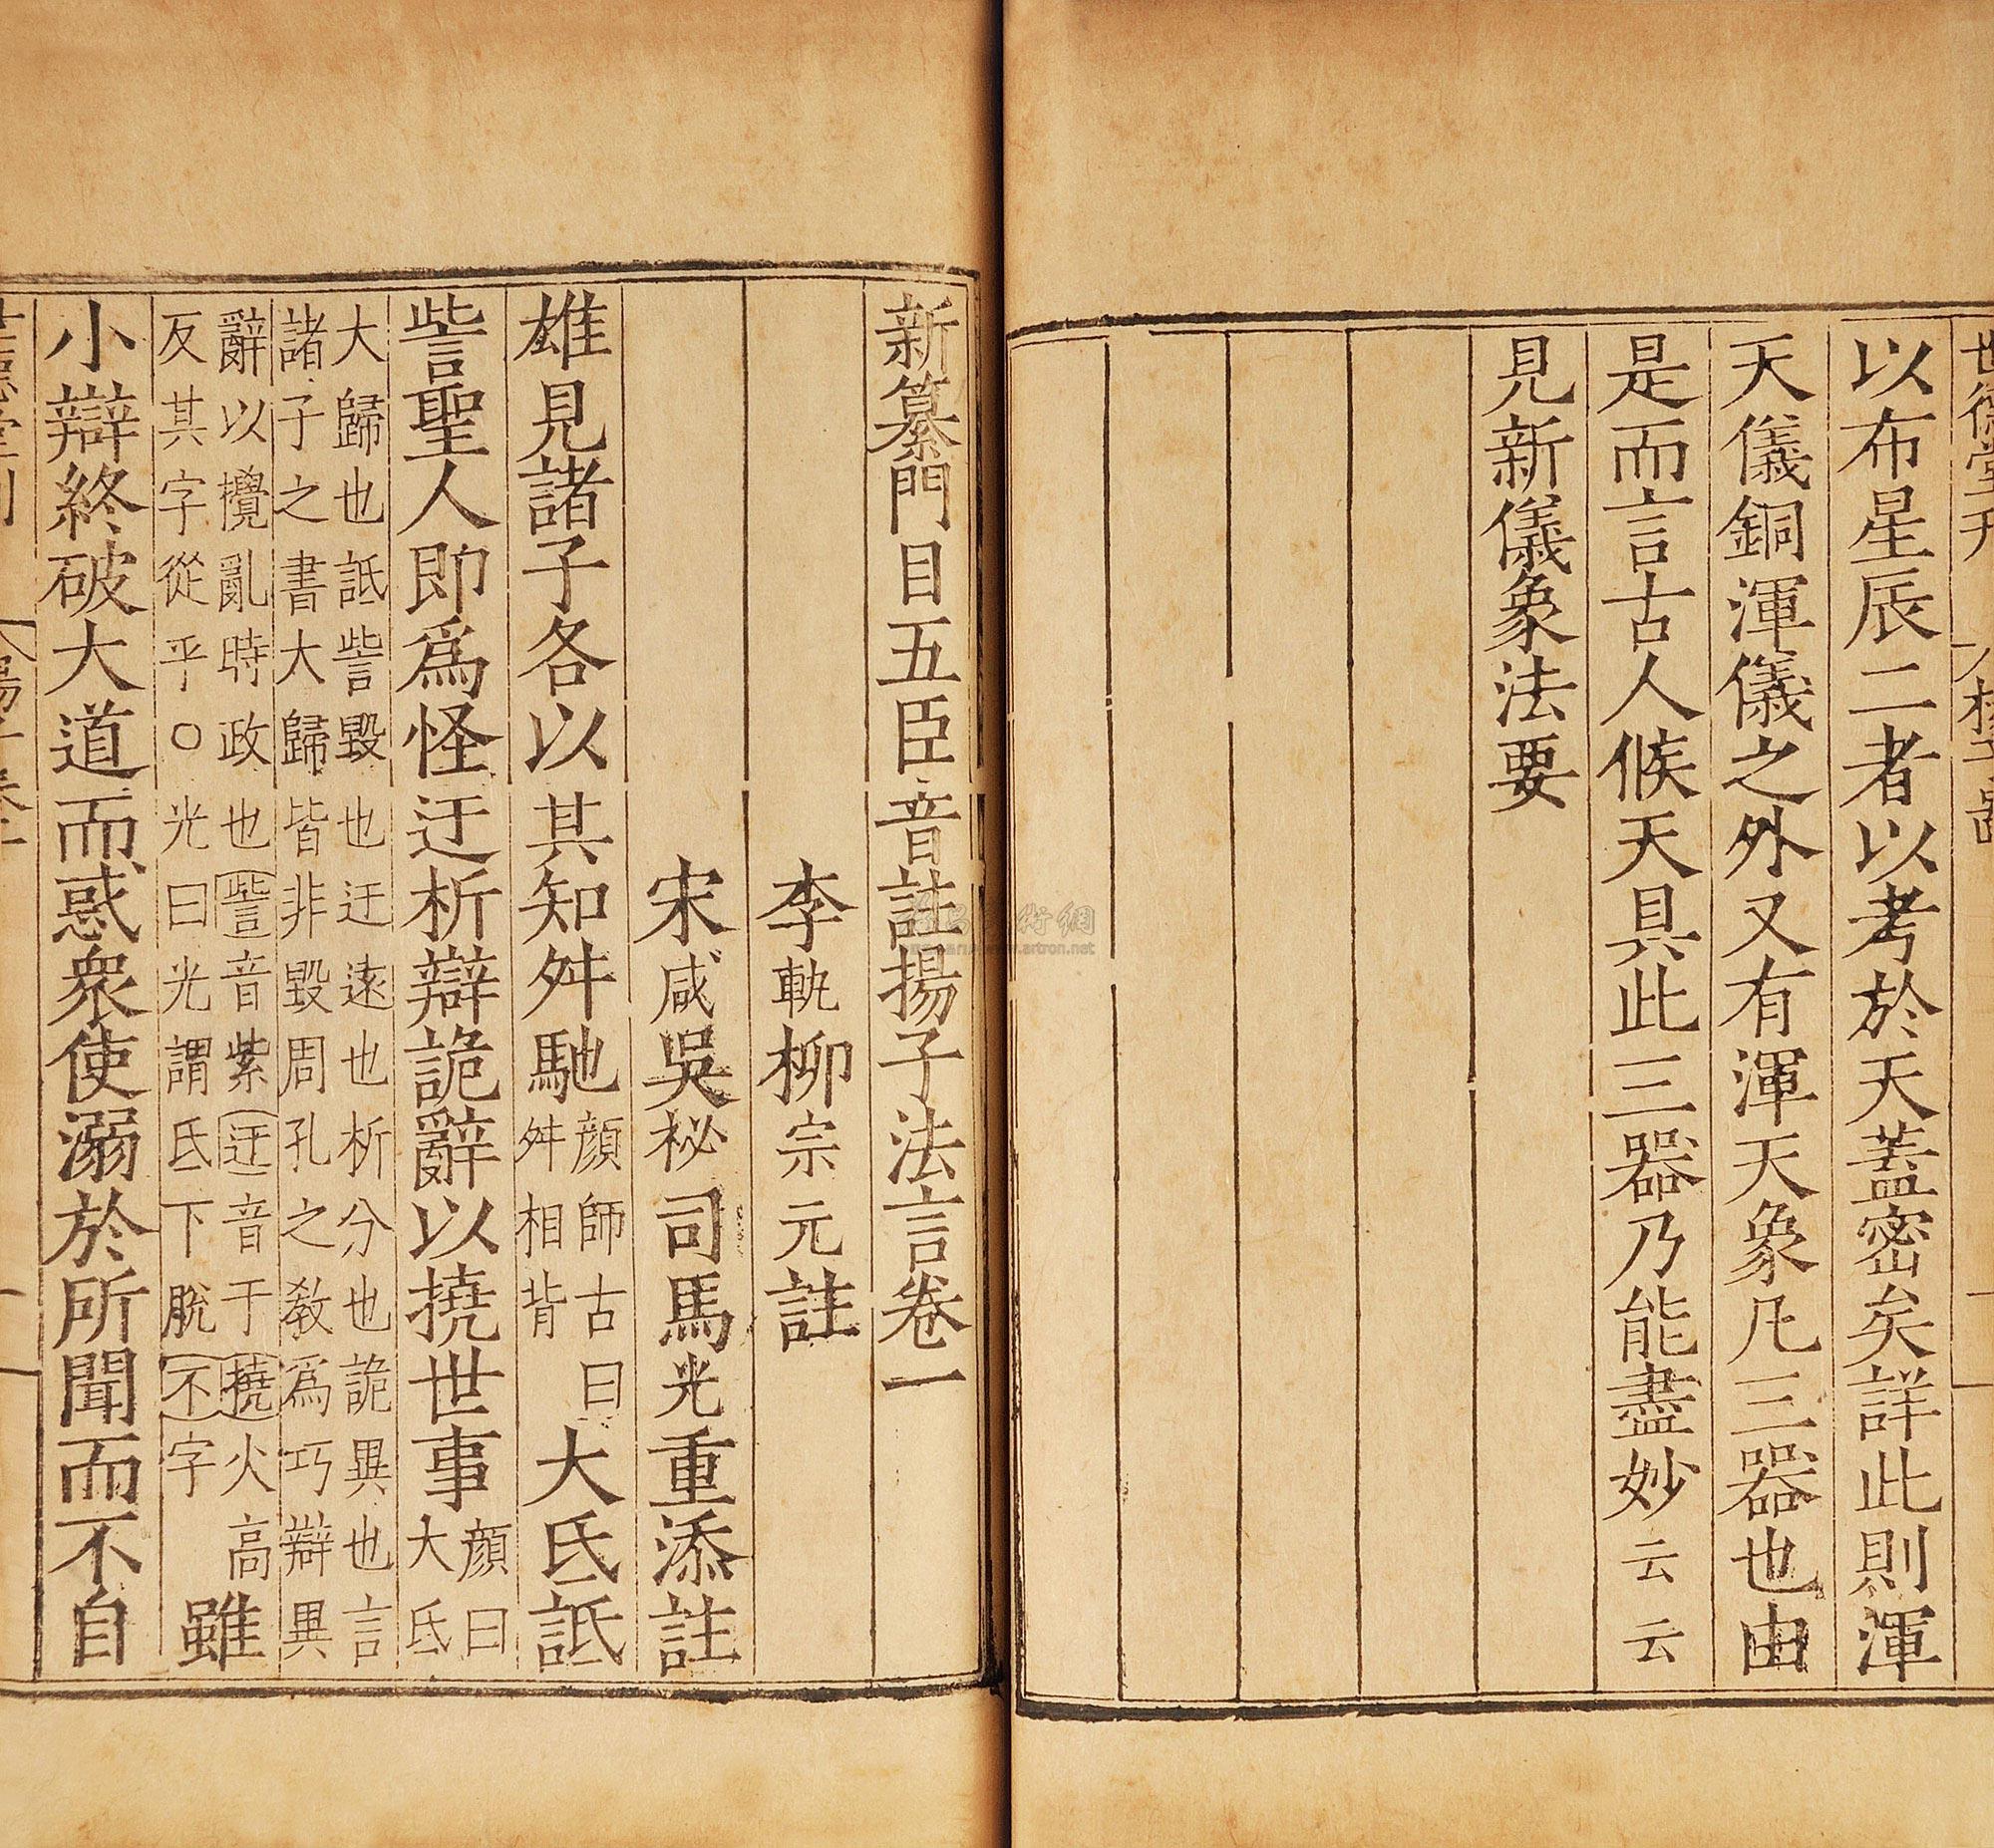 世德堂刊
以布星辰二者以考於天蓋密矣詳此則渾
天儀銅渾儀之外又有渾天象凡三器也由
是而言古人候天具此三器乃能盡妙云云
見新儀象法要
新纂門目五臣音註揚子法言卷一
李軌柳宗元註
宋咸吳祕司馬光重添註
雄見諸子各以其知舛馳顏師古曰舛相背大氐詆
訾聖人即爲怪迂析辯詭辭以撓世事顏曰大氐
大歸也詆訾毀也迂遠也析分也詭異也言
諸子之書大歸皆非毀周孔之教爲巧辯異
辭以攪亂時政也訾音紫迂音于撓火高
反其字從乎○光曰光謂氐下脫不字雖
小辯終破大道而惑衆使溺於所聞而不自
www.artron.net